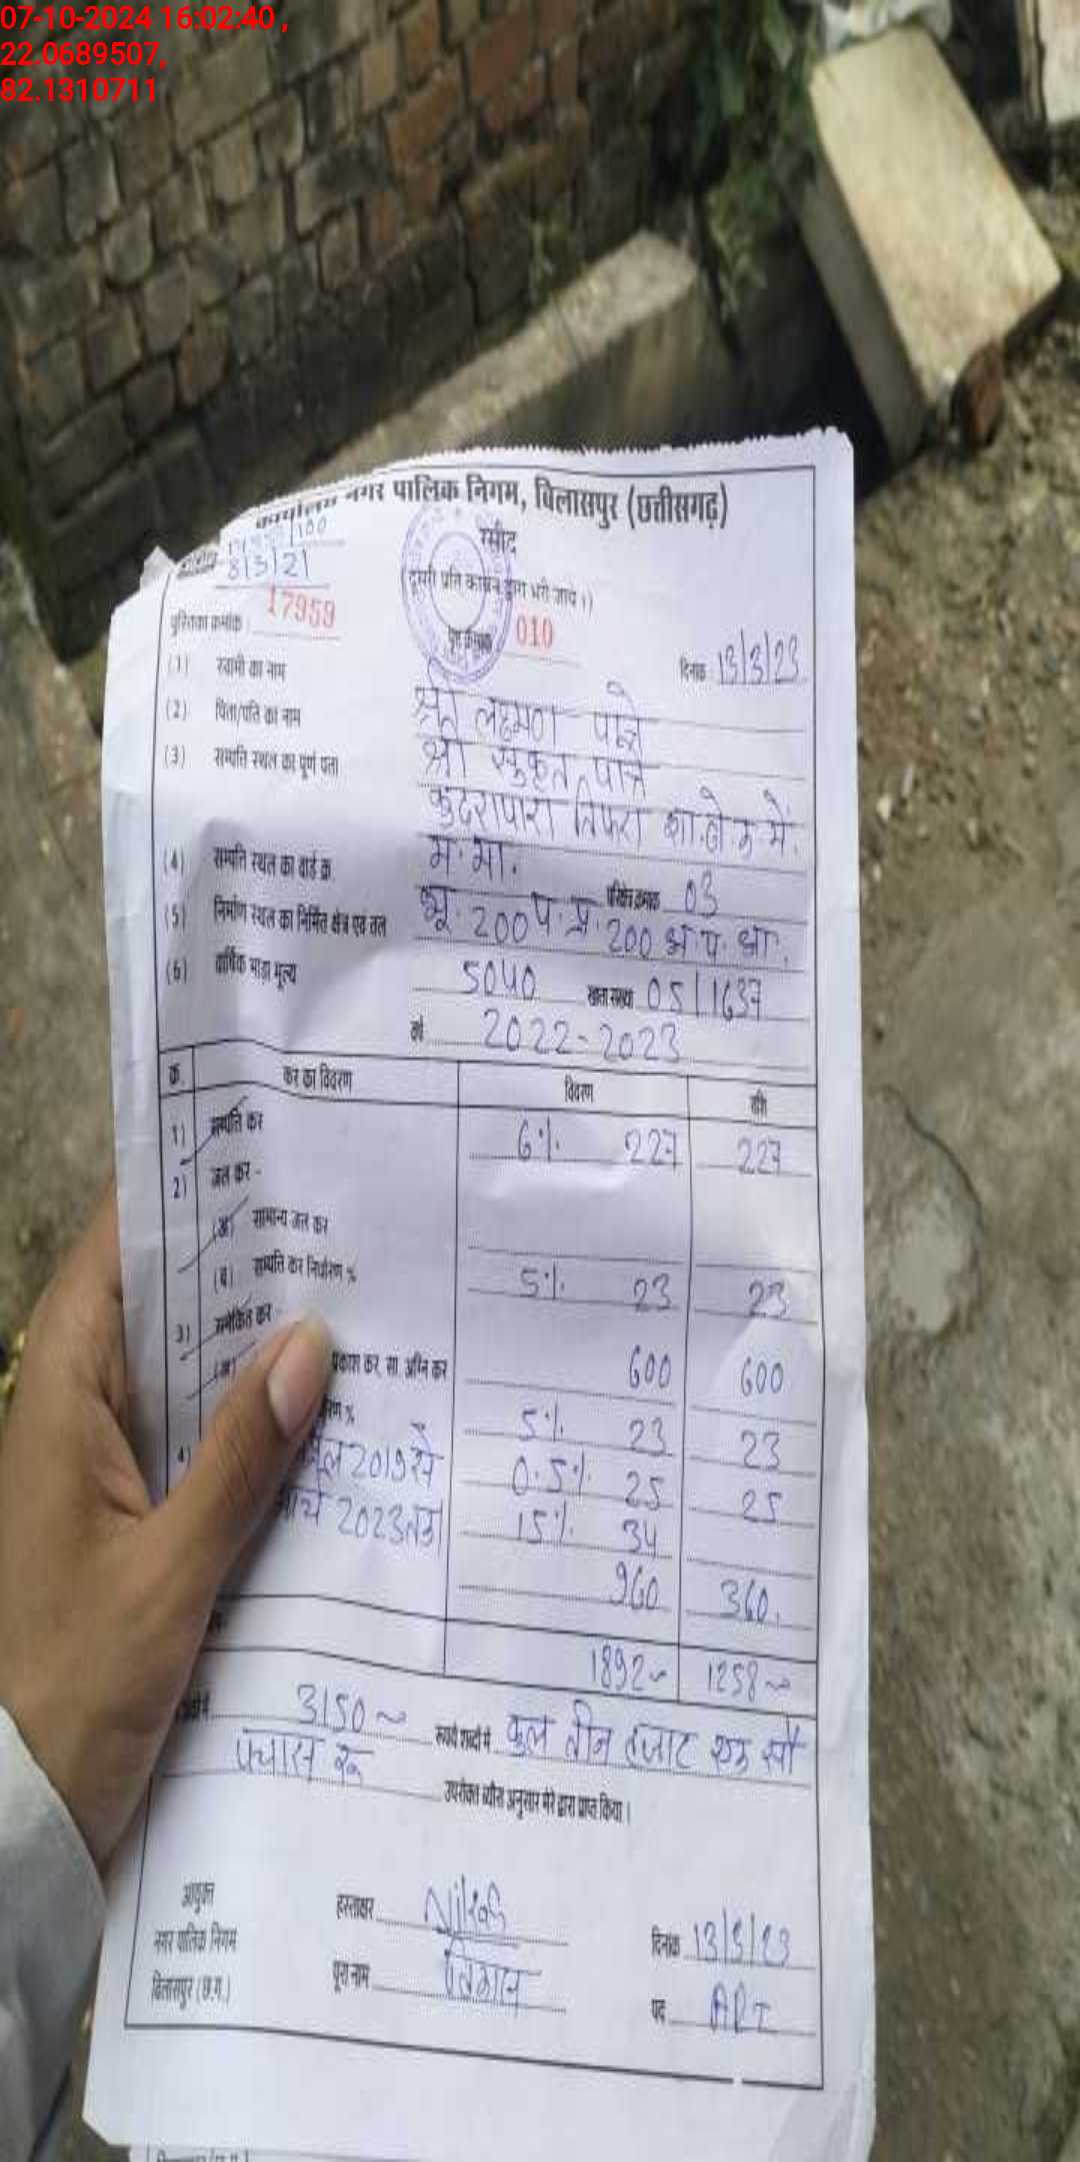 07-10-2024 16:02:40 ,
22.0689507,
82.1310711
कार्यालय नगर पालिक निगम, बिलासपुर (छत्तीसगढ़)
रसीद
100
8/3/21
(दूसरी प्रति कार्बन द्वारा भरी जावे ।)
पुस्तिका क्रमांक 17959 पृष्ठ क्रमांक 010
दिनांक 13/3/23
(1) स्वामी का नाम श्री लक्ष्मण पात्रे
(2) पिता/पति का नाम श्री सुकृत पात्रे
(3) सम्पत्ति स्थल का पूर्ण पता कुदरापारा तिफरा
म. भा.
(4) सम्पत्ति स्थल का वार्ड क्र. परिक्षेत्र क्रमांक 03
(5) निर्माण स्थल का निर्मित क्षेत्र एवं तल भू. 200 प. प्र. 200
(6) वार्षिक भाड़ा मूल्य 5040 खाता संख्या 05/1637
वर्ष 2022-2023
क्र. कर का विवरण विवरण राशि
1) सम्पत्ति कर 6% 227 227
2) जल कर -
(अ) सामान्य जल कर
(ब) सम्पत्ति कर निर्धारण % 5% 23 23
3) समेकित कर -
(अ) प्रकाश कर, सा. अग्नि कर 600 600
% 5% 23 23
4) 2019 से 0.5% 25 25
मार्च 2023 तक 15% 34
960 360
1892 1258
3150 रूपये शब्दों में कुल तीन हजार एक सौ
पचास रू
उपरोक्त ब्यौरा अनुसार मेरे द्वारा प्राप्त किया ।
आयुक्त
नगर पालिक निगम
बिलासपुर (छ.ग.)
हस्ताक्षर
दिनांक 13/3/23
पूरा नाम
पद ART